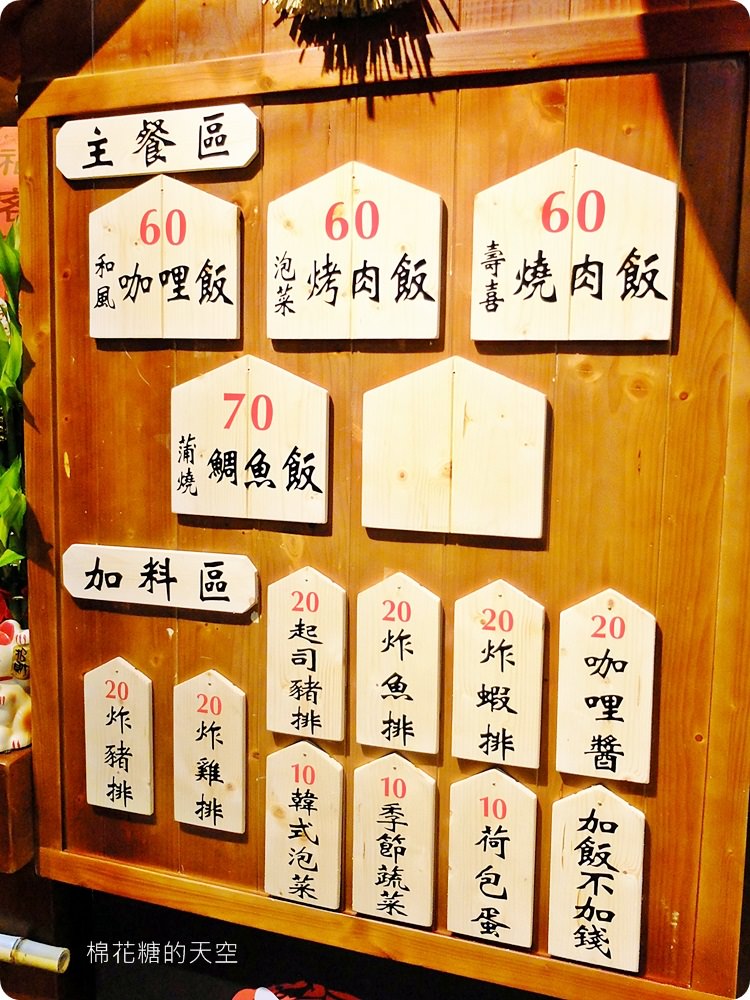 主餐區
60
和風
咖哩飯
60
泡菜
烤肉飯
60
壽喜
燒肉飯
70
蒲燒
鯛魚飯
加料區
20
炸豬排
20
炸雞排
20
起司豬排
20
炸魚排
20
炸蝦排
20
咖哩醬
10
韓式泡菜
10
季節蔬菜
10
荷包蛋
加飯不加錢
棉花糖的天空